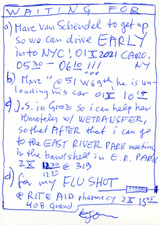 WAITING FOR
a) Marc van Schendel to get up
so we can drive EARLY
into NYC! 01 X 2021 CARO,
05 30 – 06 10 !!! NY
b) Marc " @ 51 W69th he is un-
loading his car 01 X 10 15
c) J.S. in Graz so i can help her
remotely w/ WETRANSFER,
so that AFTER that i can go
to the EAST RIVER PARK
in the bandshell in E.R. PARK
2 X @ 319
d) for my FLU SHOT
@ RITE AID pharmacy 2 X 15 45
408 Grand